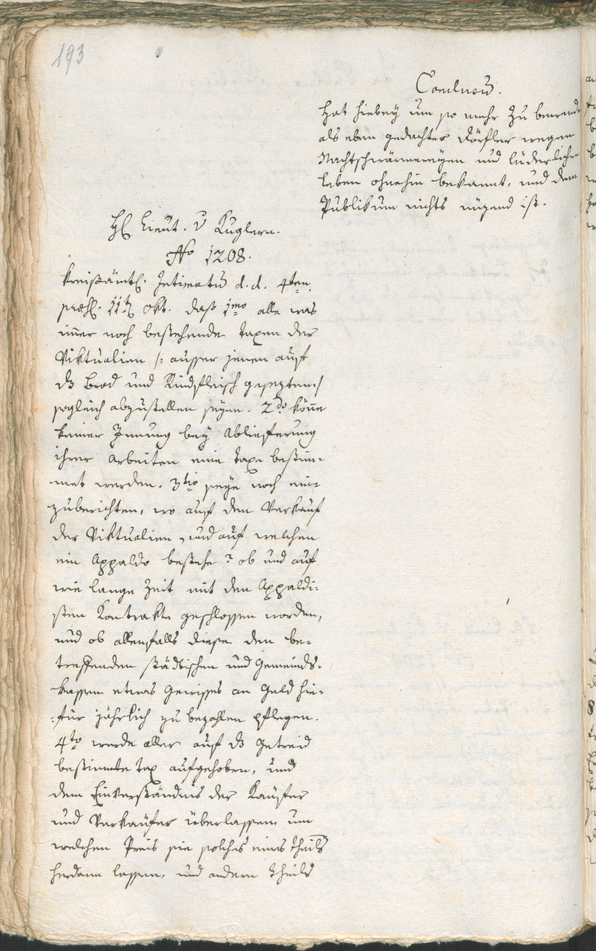 193
Conclusū.
hat hiebey um so mehr zu beruhen
als eben gedachter Dörfler wegen
Nachtschwärmereyen und lüderlichen
leben ohnehin bekannt, und dem
Publikum nichts nüzend ist.
H. Lieut. v Kuglern.
No 1208.
kreisämtl. Intimatū d. d. 4ten
praes. 11ten Okt. daß 1mo alle was
im̄er noch bestehende taxen der
Viktualien /: ausser jenen auf
ds Brod und Rindfleisch gesezten /
sogleich abzustellen seyen. 2do köne
keiner Innung bey Ablieferung
ihrer Arbeiten eine taxe bestim-
met werden. 3tio seye noch ein-
zuberichten, wo auf den Verkauf
der Viktualien, und auf welchen
ein Appaldo bestehe? ob und auf
wie lange Zeit mit den Appaldi-
sten Kontrakte geschlossen worden,
und ob allenfalls diese den be-
treffenden städtischen und Gemeinds-
kassen etwas Gewisses an Geld hie-
für jährlich zu bezahlen pflegen.
4to werde aller auf ds Getreid
bestimmte tax aufgehoben, und
dem Einverständnis der Kaufer
und Verkaufer überlassen um
welchen Preis sie solches eines theils
herdann lassen, und andern theils